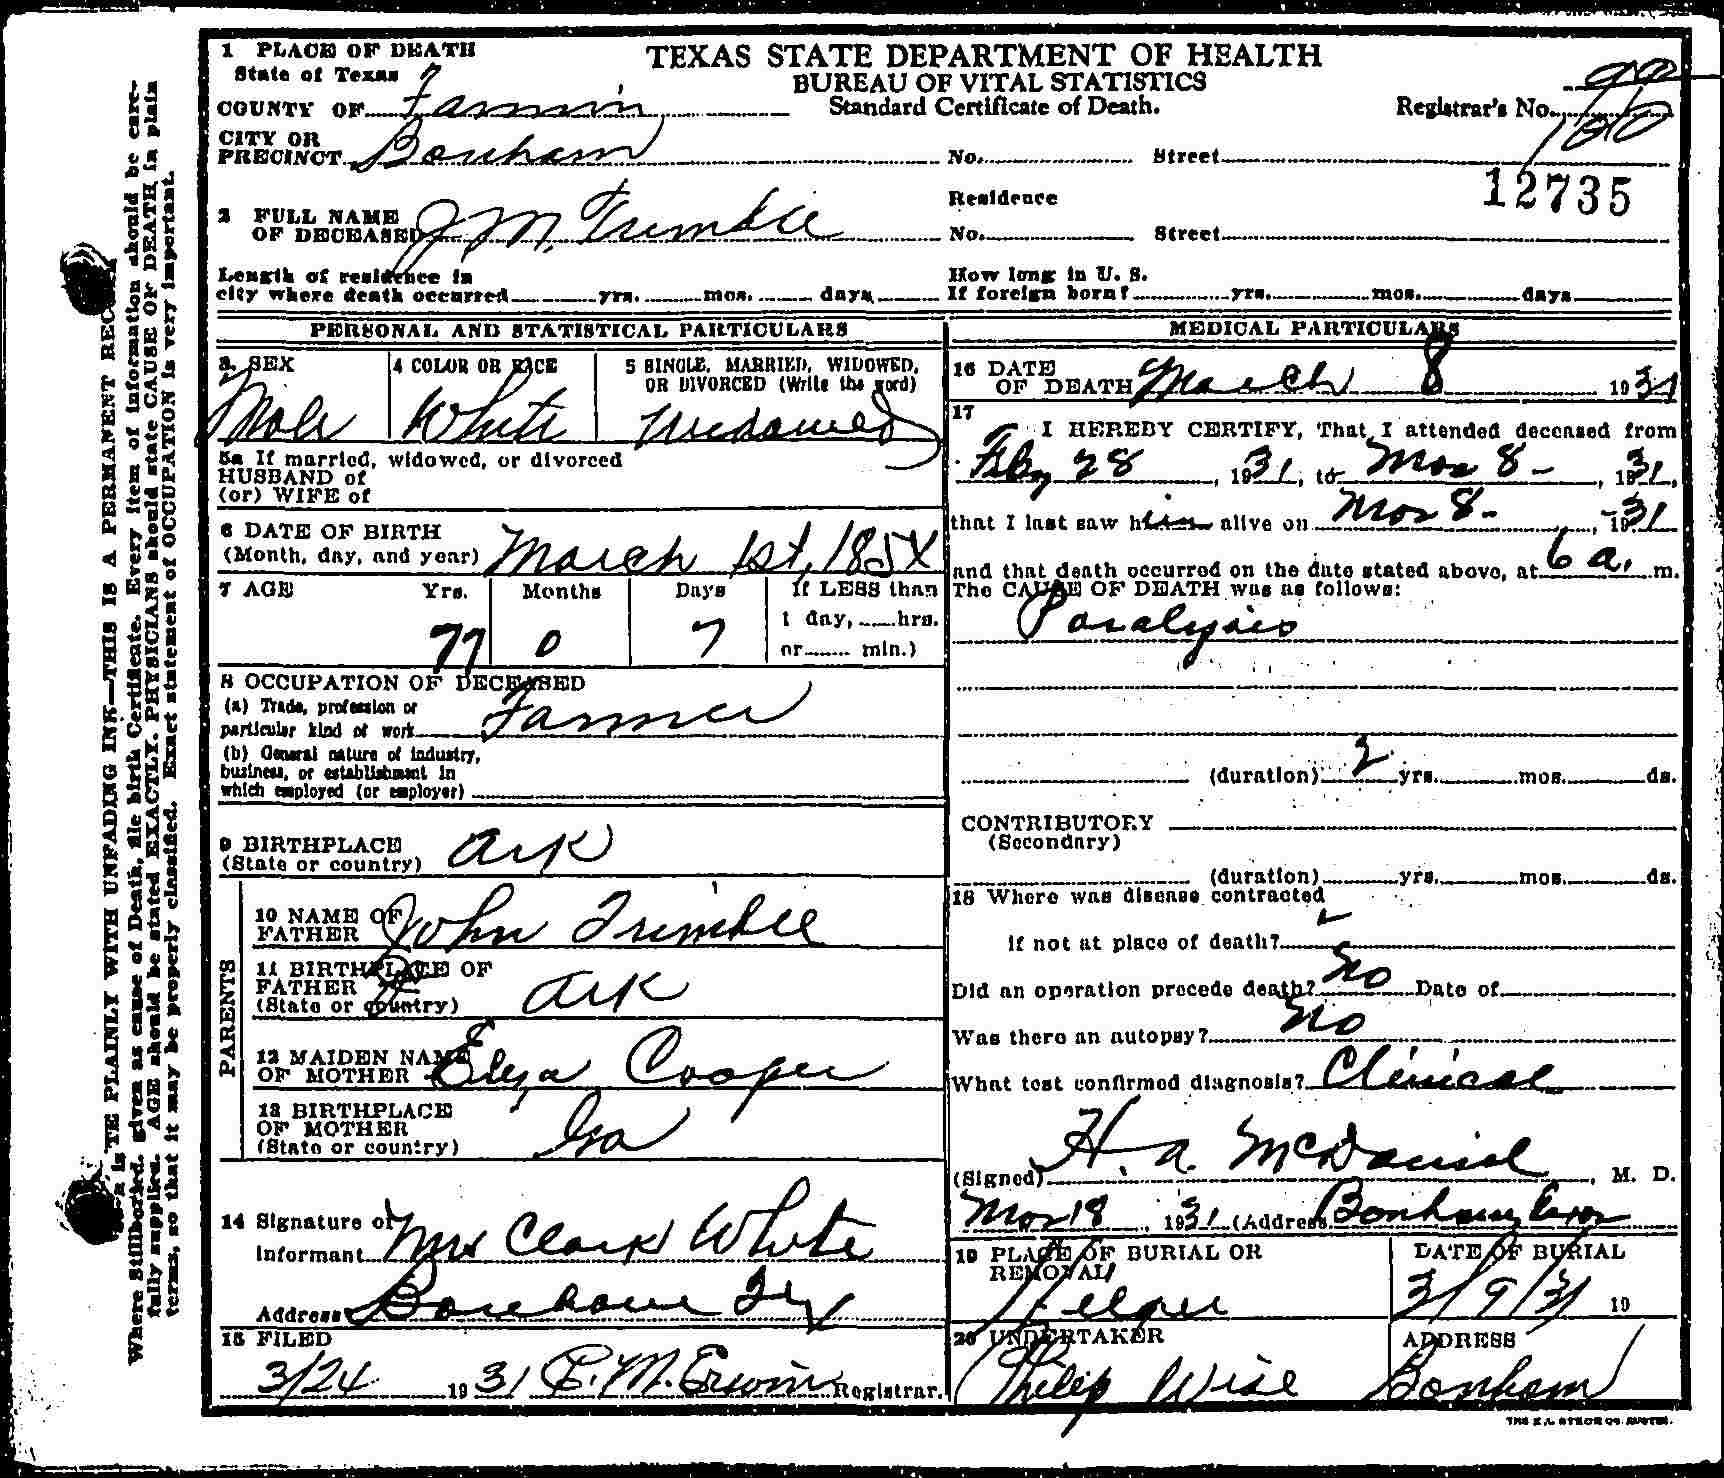 TEXAS STATE DEPARTMENT OF HEALTH
BUREAU OF VITAL STATISTICS
Standard Certificate of Death.
1 PLACE OF DEATH
State of Texas
COUNTY OF Fannin
Registrar's No.
CITY OR
PRECINCT Bonham No. Street
12735
Residence
2 FULL NAME
OF DECEASED J M. Trimble No. Street
Length of residence in
city where death occurred yrs. mos. days
How long in U. S.
If foreign born? yrs. mos. days
PERSONAL AND STATISTICAL PARTICULARS
3. SEX
Male
4 COLOR OR RACE
White
5 SINGLE, MARRIED, WIDOWED,
OR DIVORCED (Write the word)
Widowed
5a If married, widowed, or divorced
HUSBAND of
(or) WIFE of
6 DATE OF BIRTH
(Month, day, and year) March 1st, 1854
7 AGE Yrs. Months Days If LESS than
1 day, hrs.
77 0 7 or min.)
8 OCCUPATION OF DECEASED
(a) Trade, profession or
particular kind of work Farmer
(b) General nature of industry,
business, or establishment in
which employed (or employer)
9 BIRTHPLACE
(State or country) Ark
PARENTS
10 NAME OF
FATHER John Trimble
11 BIRTHPLACE OF
FATHER
(State or country) Ark
12 MAIDEN NAME
OF MOTHER Eliza Cooper
13 BIRTHPLACE
OF MOTHER
(State or country) Ga
14 Signature of
Informant Mrs Clark White
Address Bonham Tex
15 FILED
3/24 1931 E. M. Erwin Registrar.
MEDICAL PARTICULARS
16 DATE
OF DEATH March 8 1931
17
I HEREBY CERTIFY, That I attended deceased from
Feby 28, 1931, to Mar 8-, 1931,
that I last saw him alive on Mar 8-, 1931
and that death occurred on the date stated above, at 6 a. m.
The CAUSE OF DEATH was as follows:
Paralysis
(duration) 2 yrs. mos. ds.
CONTRIBUTORY
(Secondary)
(duration) yrs. mos. ds.
18 Where was disease contracted
if not at place of death?
Did an operation precede death? No Date of
Was there an autopsy? No
What test confirmed diagnosis? Clinical
(Signed) H. A. McDaniel, M. D.
Mar 18, 1931 (Address Bonham, Texas
19 PLACE OF BURIAL OR
REMOVAL
DATE OF BURIAL
3/9/31 19
20 UNDERTAKER
Philip Wise
ADDRESS
Bonham
TE PLAINLY WITH UNFADING INK—THIS IS A PERMANENT RECORD
Where Stillborn is given as cause of Death, file birth Certificate. Every item of information should be care-
fully supplied. AGE should be stated EXACTLY. PHYSICIANS should state CAUSE OF DEATH in plain
terms, so that it may be properly classified. Exact statement of OCCUPATION is very important.